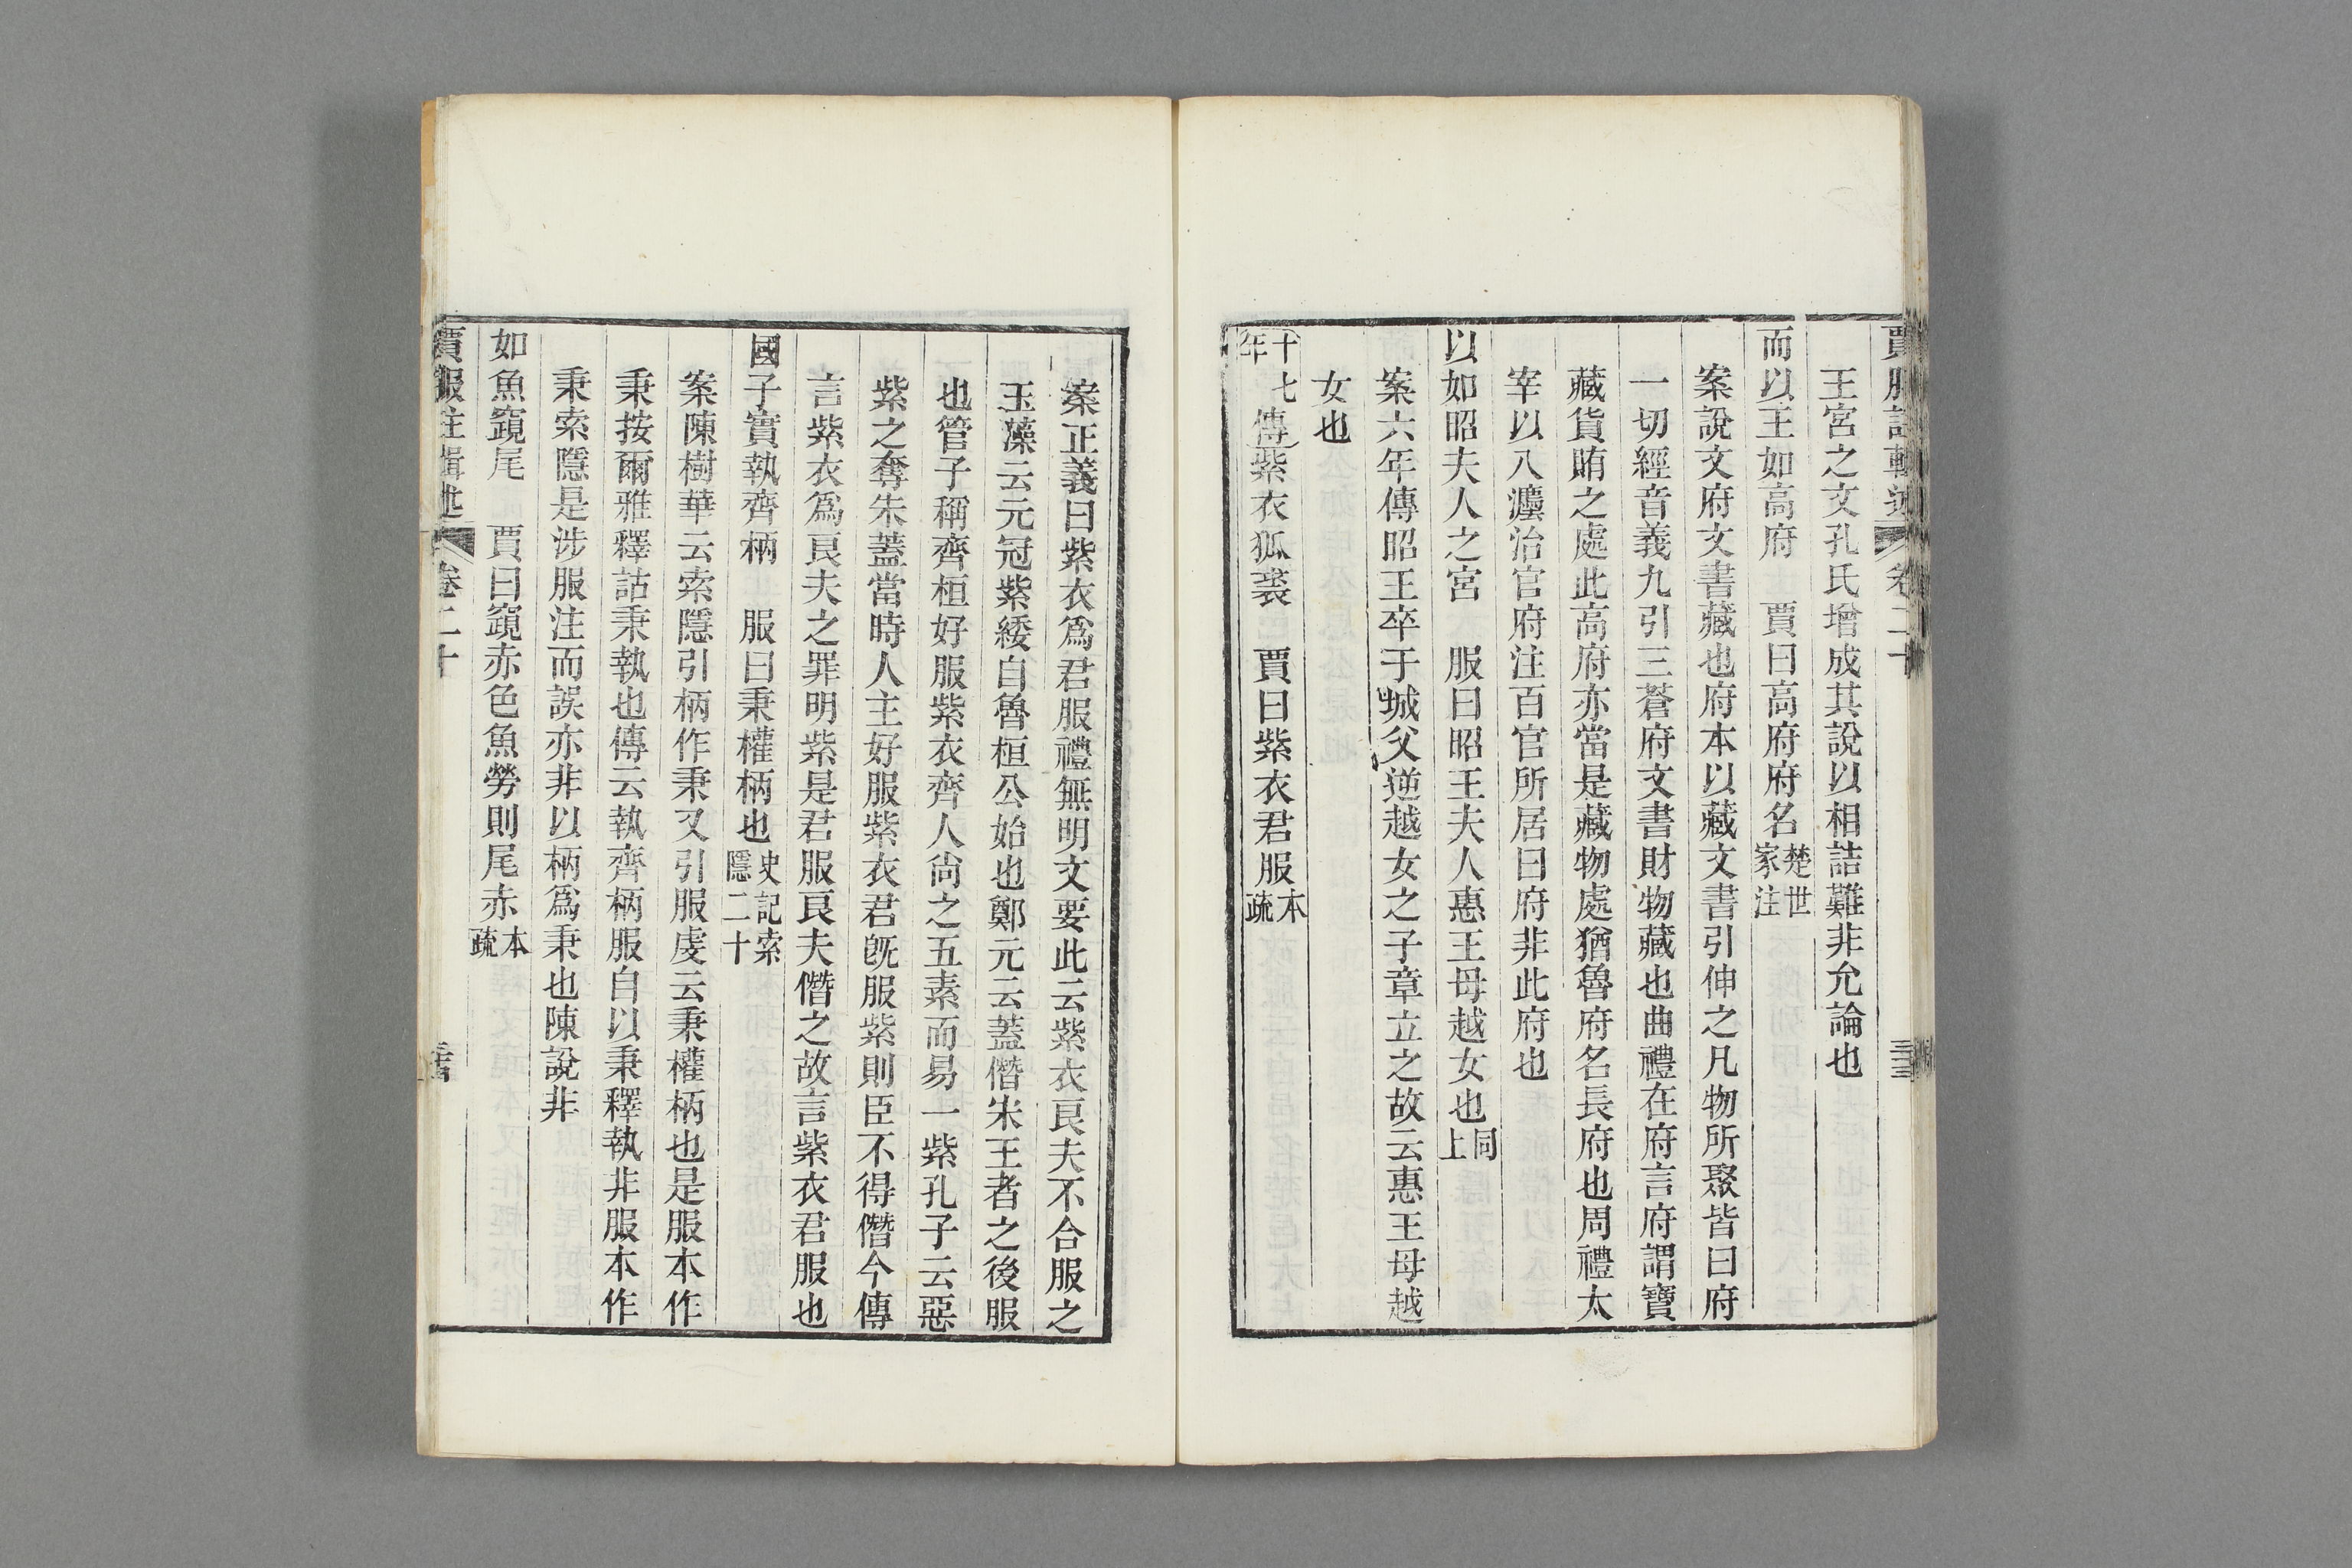 賈服註輯述 卷二十 三三
王宮之文孔氏增成其說以相詰難非允論也
而以王如高府 賈曰高府府名楚世家注
案說文府文書藏也府本以藏文書引伸之凡物所聚皆曰府
一切經音義九引三蒼府文書財物藏也曲禮在府言府謂寶
藏貨賄之處此高府亦當是藏物處猶魯府名長府也周禮太
宰以八灋治官府注百官所居曰府非此府也
以如昭夫人之宮 服曰昭王夫人惠王母越女也同上
案六年傳昭王卒于城父逆越女之子章立之故云惠王母越
女也
十七年傳紫衣狐裘 賈曰紫衣君服本疏
案正義曰紫衣爲君服禮無明文要此云紫衣良夫不合服之
玉藻云元冠紫緌自魯桓公始也鄭元云蓋僭宋王者之後服
也管子稱齊桓好服紫衣齊人尙之五素而易一紫孔子云惡
紫之奪朱蓋當時人主好服紫衣君旣服紫則臣不得僭今傳
言紫衣爲良夫之罪明紫是君服良夫僭之故言紫衣君服也
國子實執齊柄 服曰秉權柄也史記索隱二十
案陳樹華云索隱引柄作秉又引服虔云秉權柄也是服本作
秉按爾雅釋詁秉執也傳云執齊柄服自以秉釋執非服本作
秉索隱是涉服注而誤亦非以柄爲秉也陳說非
如魚竀尾 賈曰竀赤色魚勞則尾赤本疏
賈服注輯述 卷二十